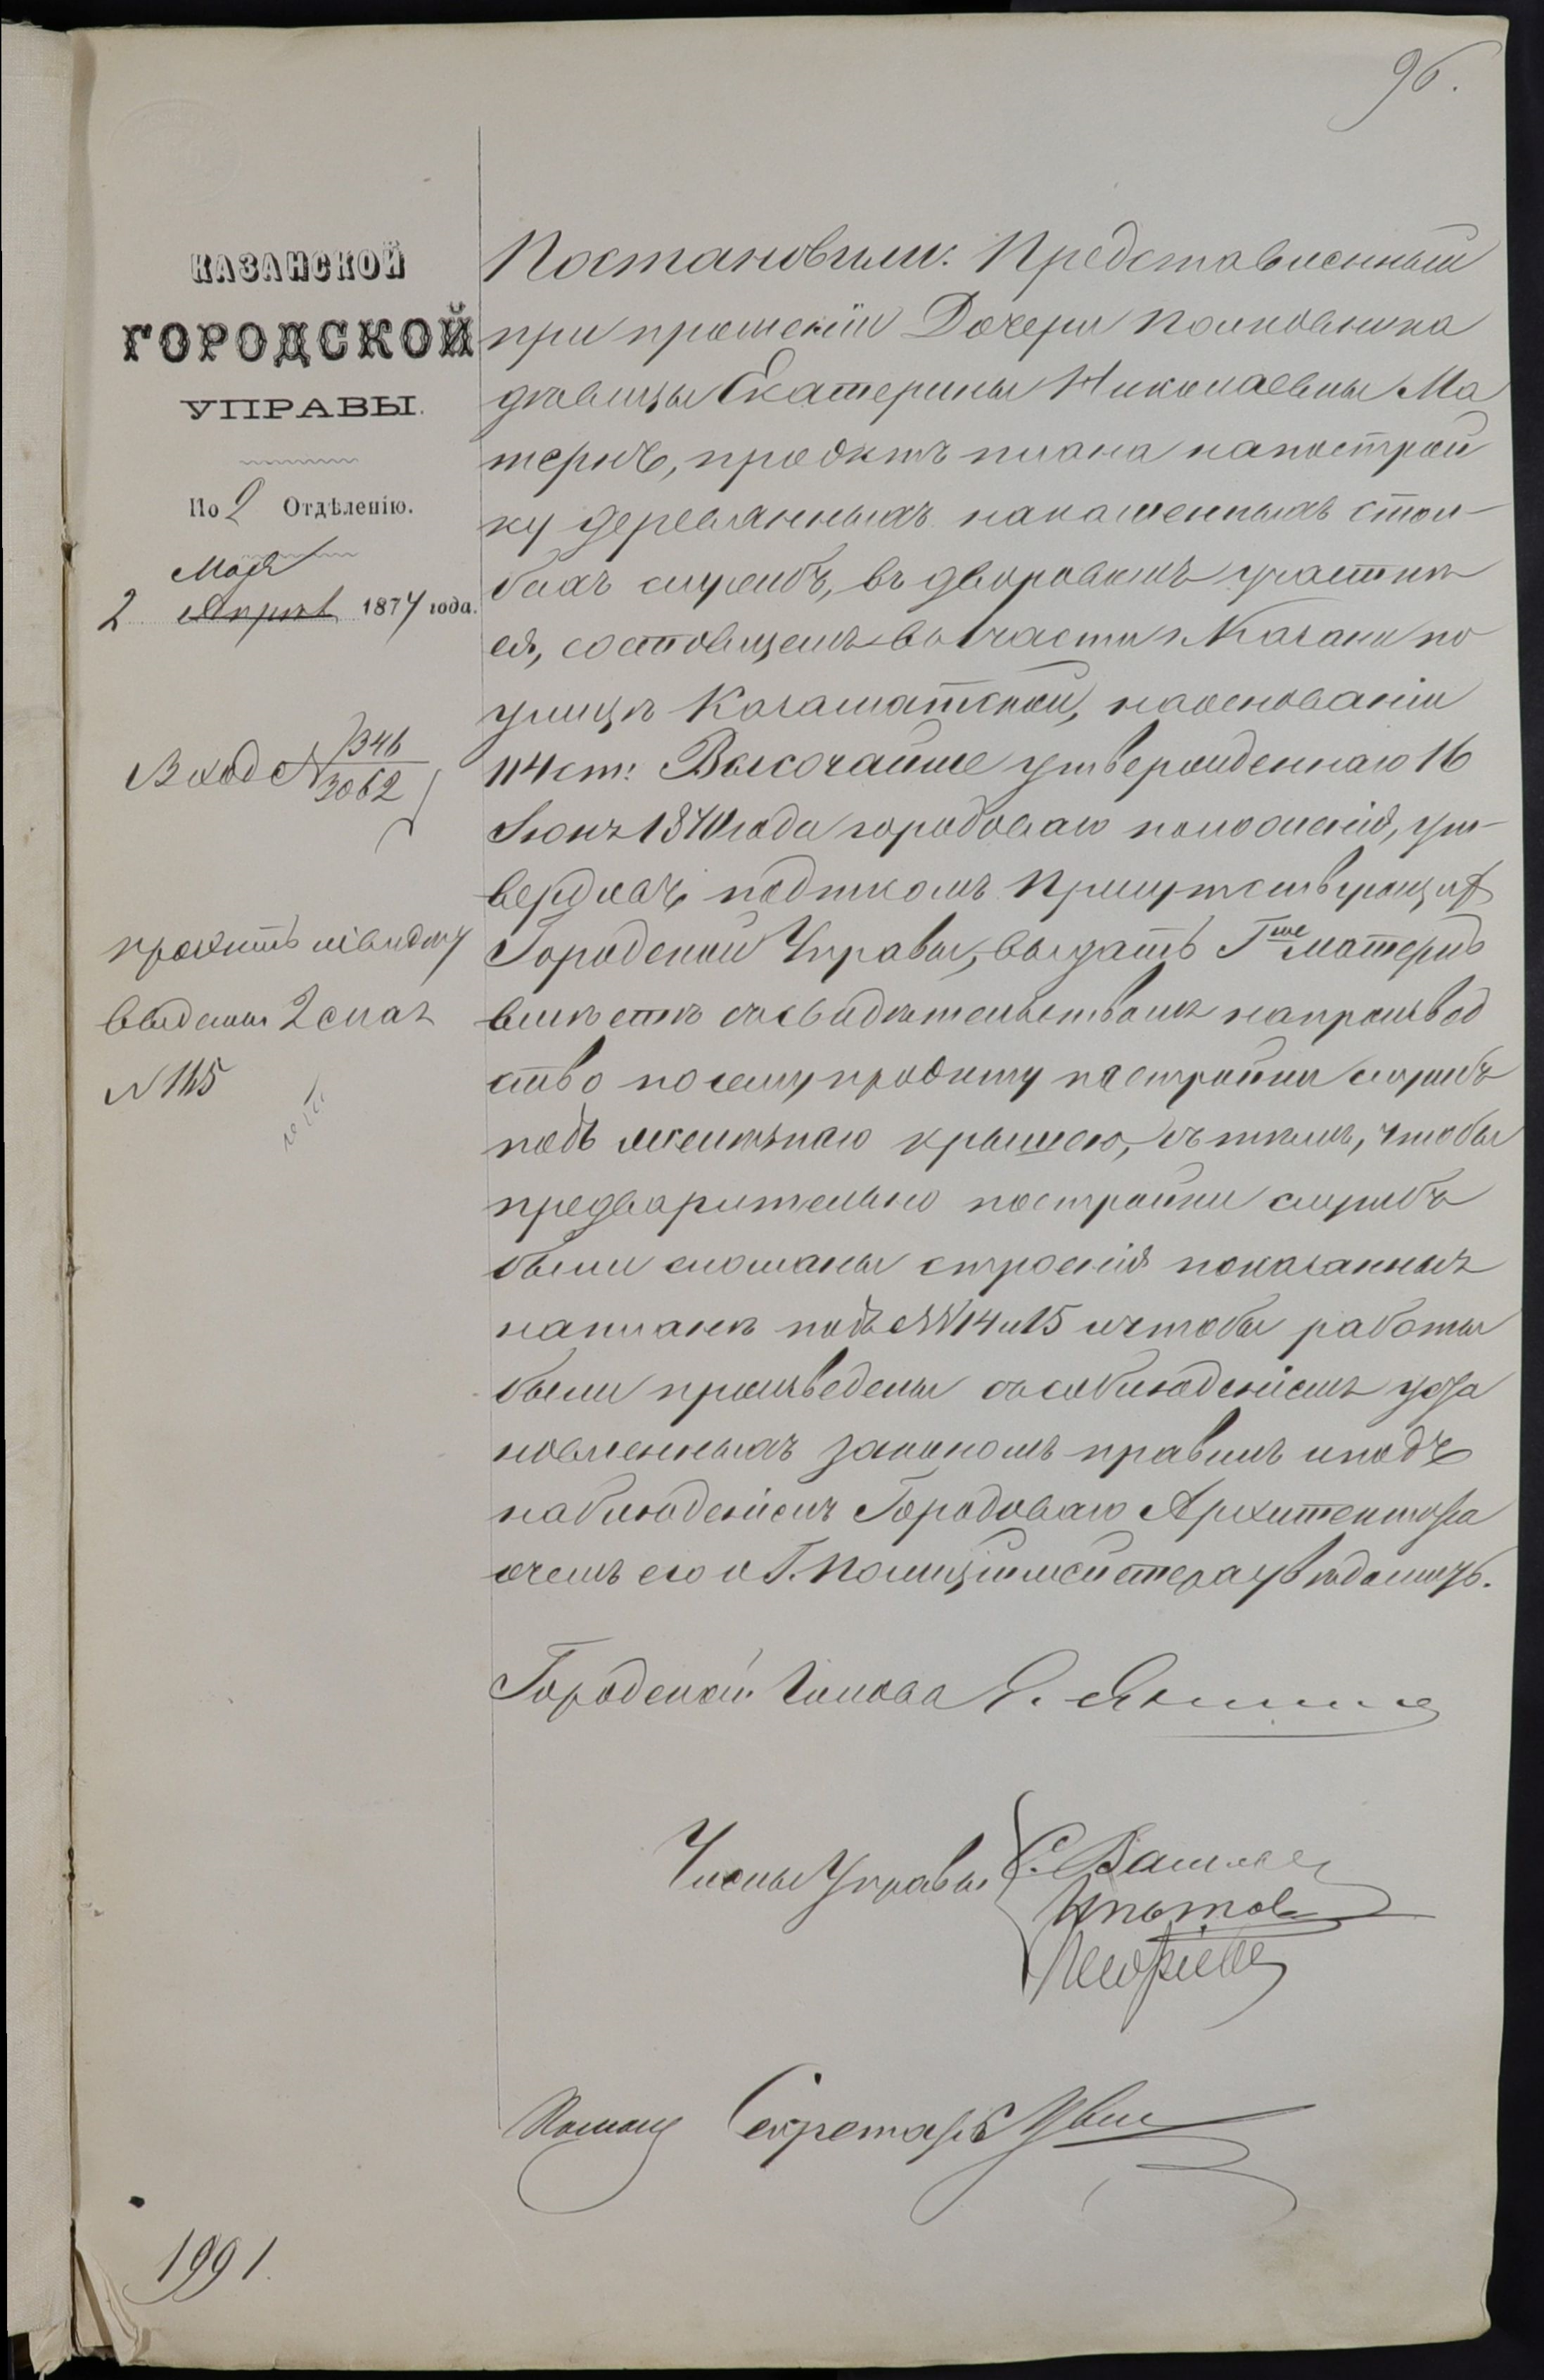 96.
КАЗАНСКОЙ
ГОРОДСКОЙ
УПРАВЫ.
По 2 Отдѣленію.
Мая
2 Апрѣля 1874 года.
Вход № 1346
3062
выдана 2 мая
№ 145
Постановили: Представленный
при прошеніи Дочери Полковника
дѣвицы Екатерины Николаевны Ма
тернъ, проэктъ плана на построй
ку деревянныхъ на каменныхъ стол-
бахъ службъ, въ дворовомъ участкѣ
ея, состоящемъ во 2 части г. Казани по
улицѣ Комаматской, на основаніи
114 ст: Высочайше утвержденнаго 16
Іюня 1870 года городоваго положенія, ут-
вердивъ подписомъ Присутствующихъ
Городской Управы, выдать Г-же Матернъ
вмѣстѣ съ свидѣтельствомъ на производ
ство по сему проэкту постройки службъ
подъ желѣзною крышею, съ тѣмъ, чтобы
предварительно постройки службъ
были сломаны строенія показанныя
на планѣ подъ №№ 14 и 15 и чтобы работы
были произведены съ соблюденіемъ уста
новленныхъ закономъ правилъ и подъ
наблюденіемъ Городоваго Архитектора
о чемъ его и Г. Полиціймейстера увѣдомить.
Городской Голова Э. Янишъ
Члены Управы
Ипатов
Помощ Секретаря
1991.